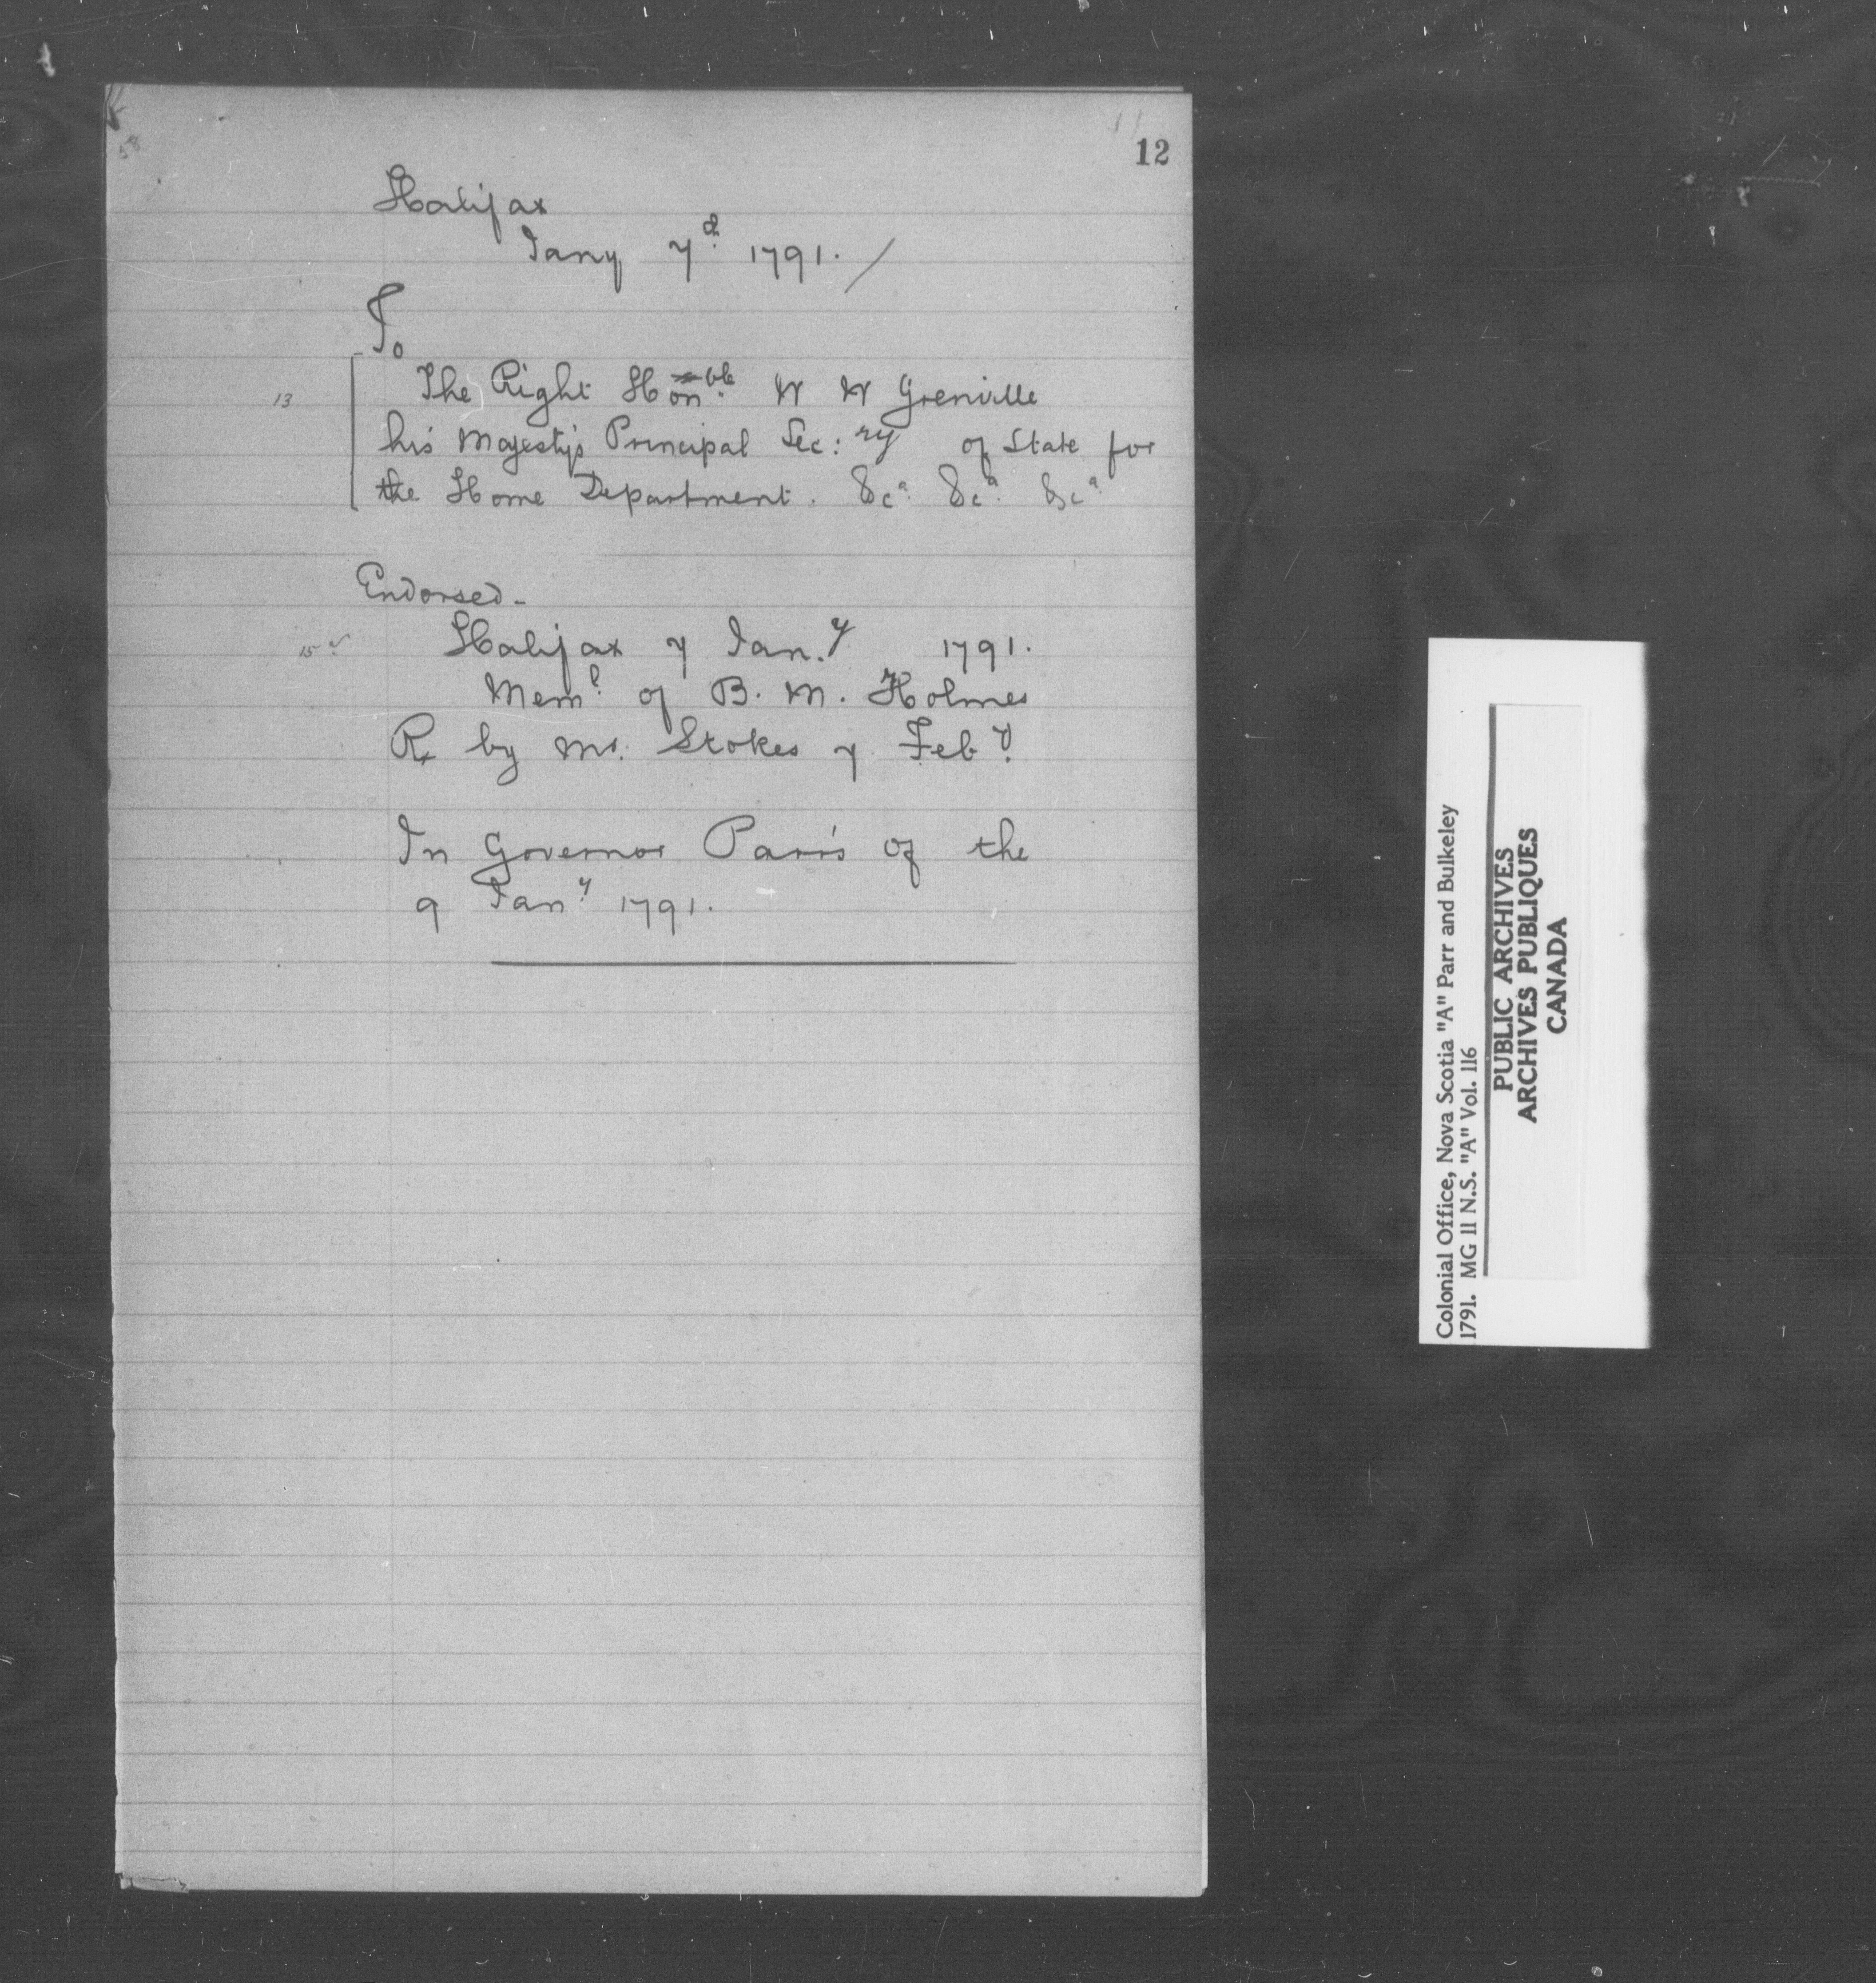 12
Halifax
Jany 7th 1791.
To
The Right Honble W W Grenville
13
his Majesty's Principal Sec:ry of State for
the Home Department. &ca &ca &ca
Endorsed -
15
Halifax 7 Jan.y 1791.
Meml of B. M. Holmes
R by Mr. Stokes 7 Feby
In Governor Parr's of the
9 Jany 1791.
Colonial Office, Nova Scotia "A" Parr and Bulkeley
1791. MG 11 N.S. "A" Vol. 116
PUBLIC ARCHIVES
ARCHIVES PUBLIQUES
CANADA